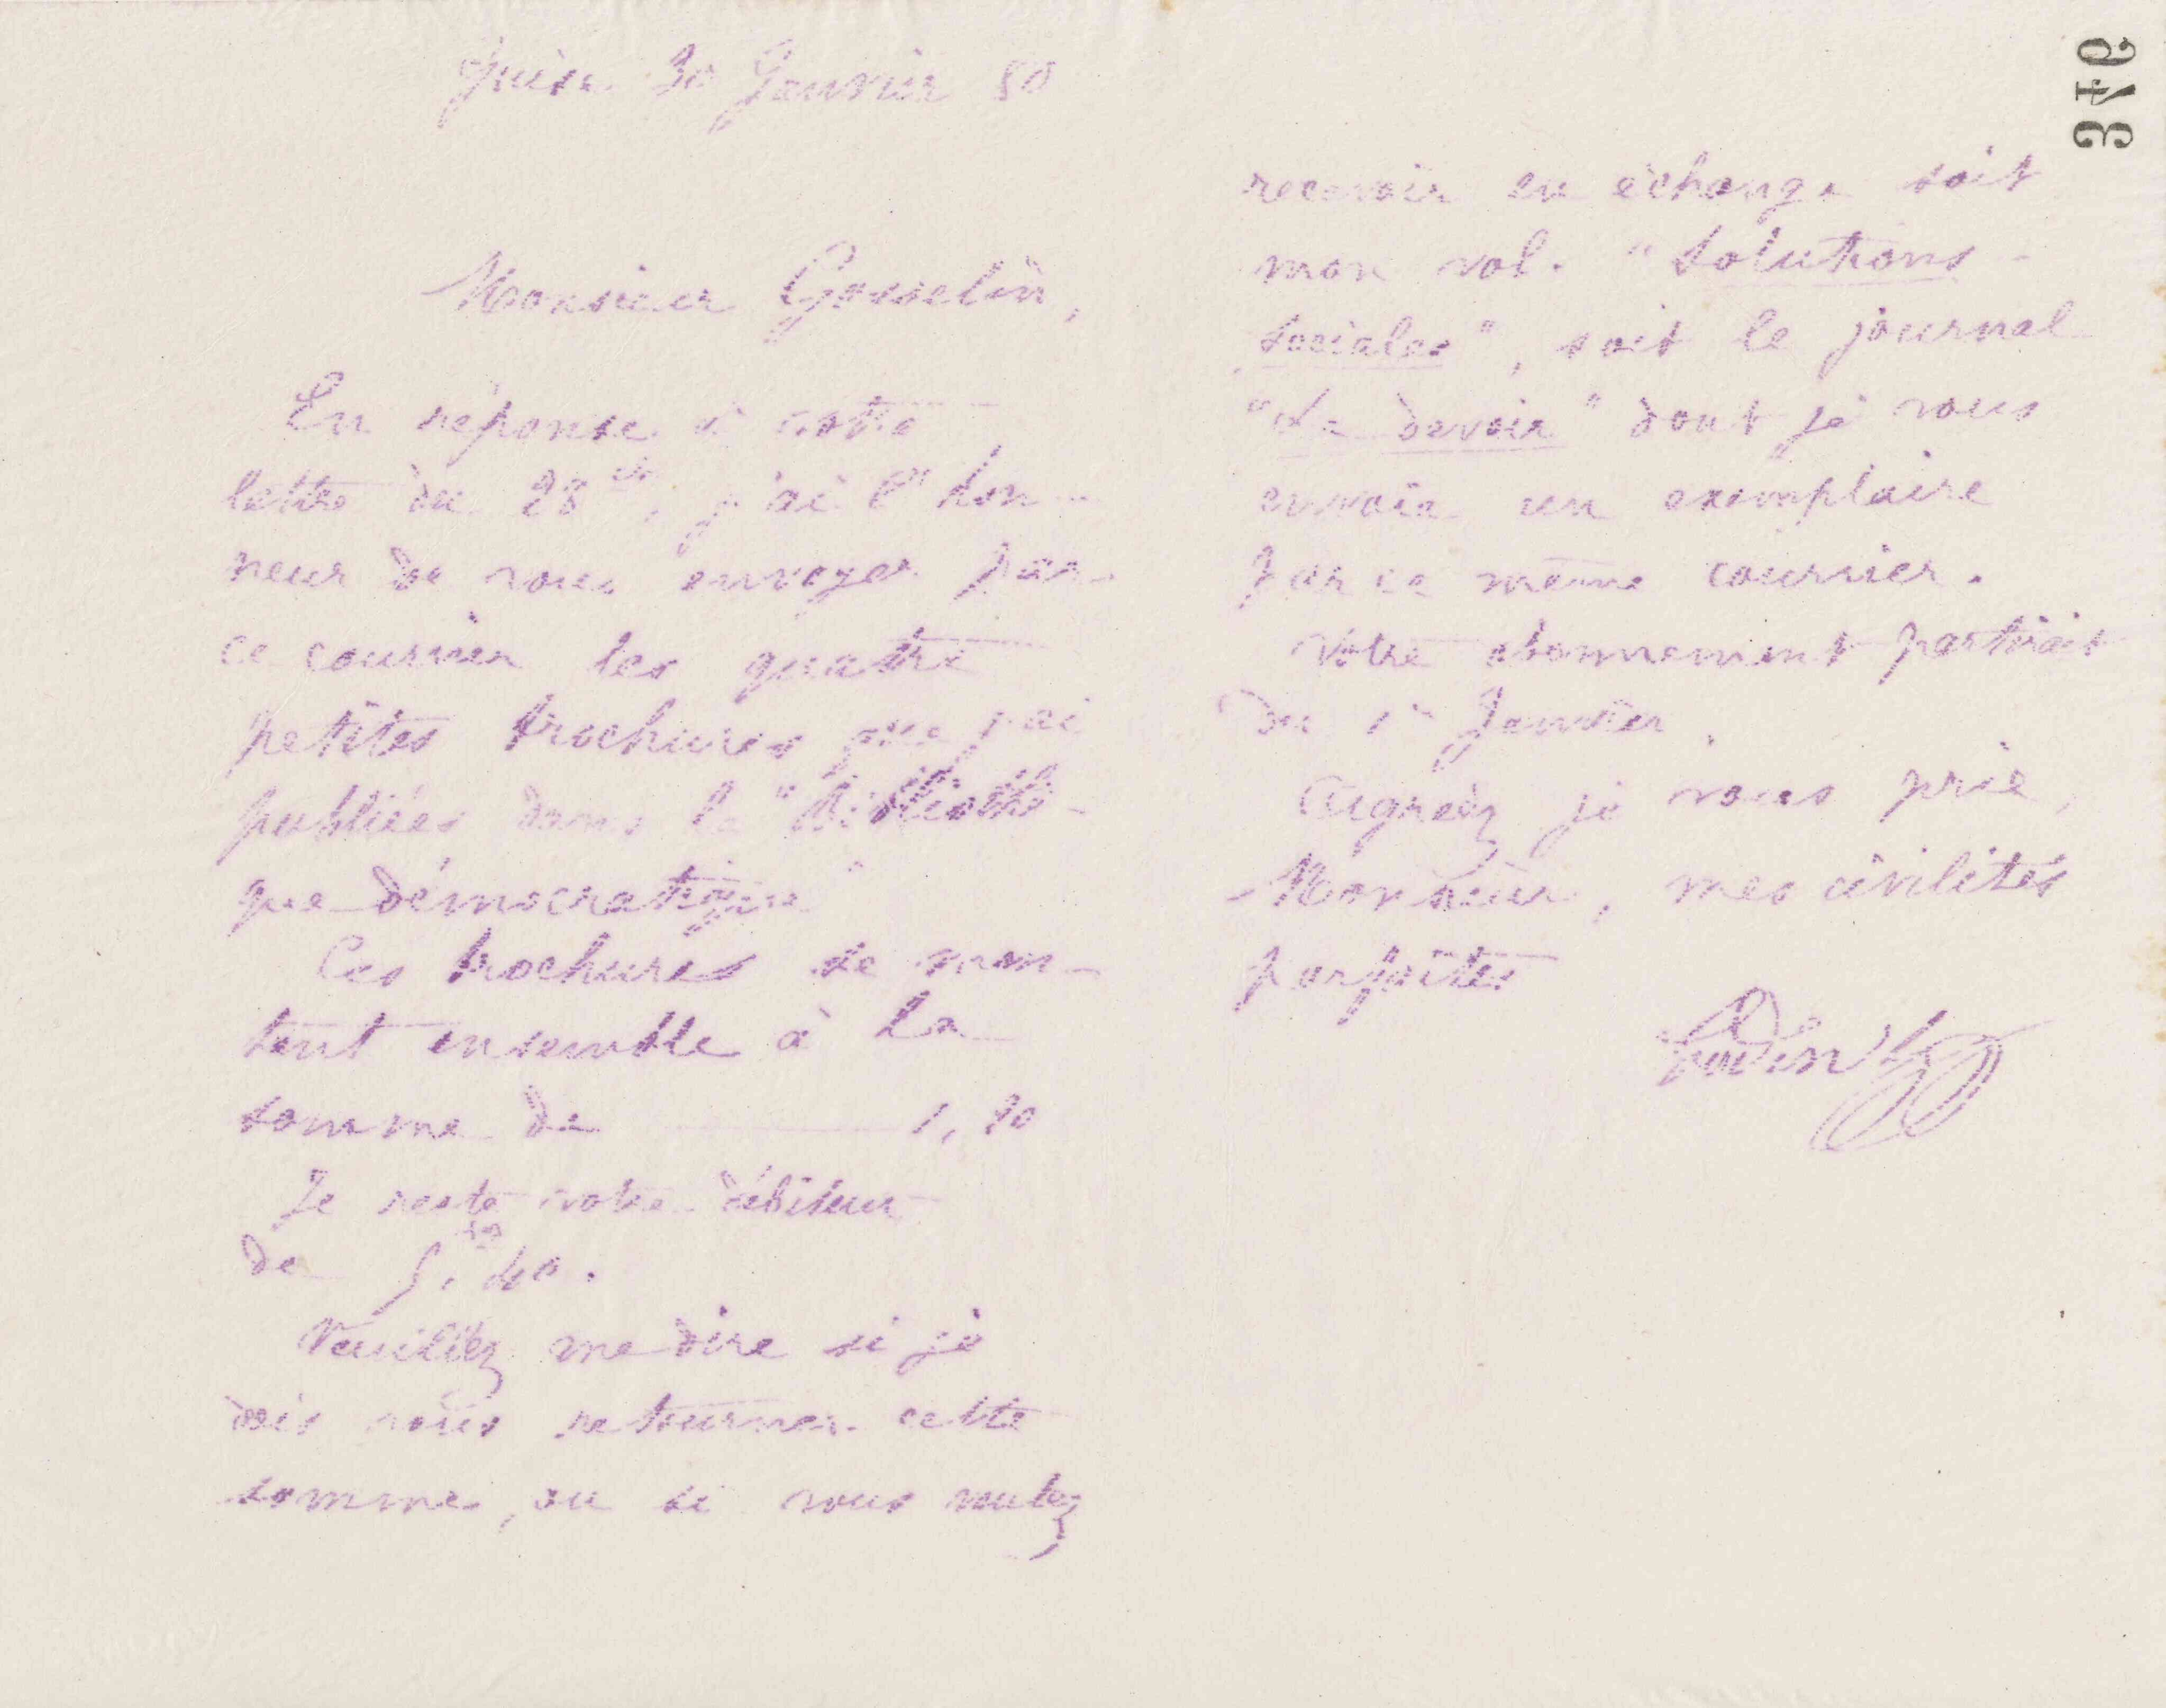 Guise 30 Janvier 80
Monsieur Gosselin,
En réponse à votre
lettre du 28 ct, j'ai l'hon-
neur de vous envoyer par
ce courrier les quatre
petites brochures que j'ai
publiées dans la "Bibliothè-
que démocratique"
Ces brochures se mon-
tent ensemble à la
somme de 1,20
Je reste votre débiteur
de 5,40.
Veuillez me dire si je
dois vous retourner cette
somme, ou si vous voulez
346
recevoir en échange soit
mon vol. "Solutions
sociales", soit le journal
"Le devoir" dont je vous
envoie un exemplaire
par ce même courrier.
Votre abonnement partirait
du 1er Janvier.
Agréez je vous prie,
Monsieur, mes civilités
parfaites
Godin